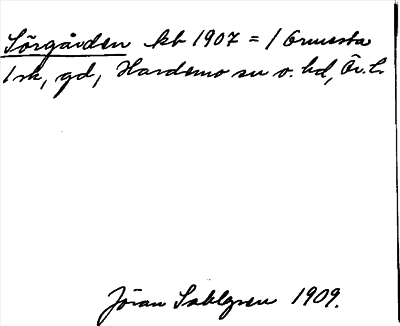 Sörgården kb 1907 = / Ormesta
1 sk, gd, Hardemo sn o. hd, Ör. l.
Jöran Sahlgren 1909.